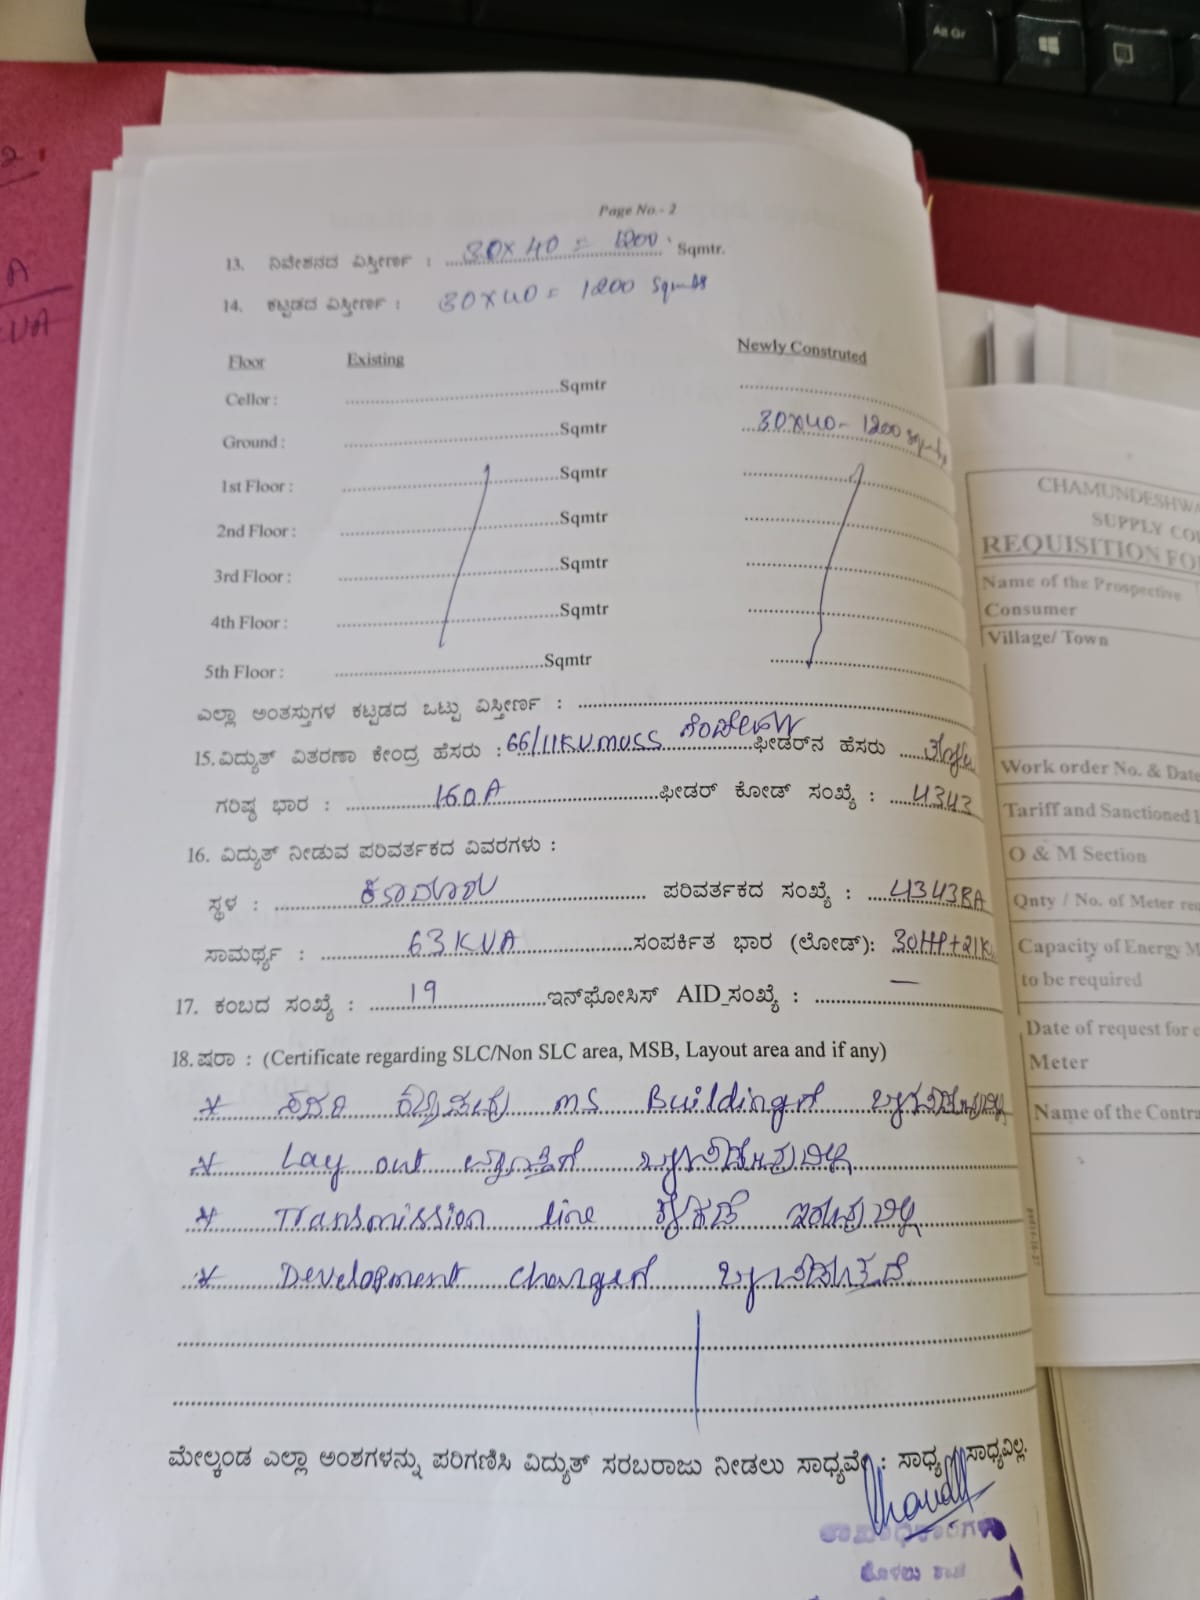 Alt Gr
Page No.- 2
13. ನಿವೇಶನದ ವಿಸ್ತೀರ್ಣ : 30x40 = 1200 Sqmtr.
14. ಕಟ್ಟಡದ ವಿಸ್ತೀರ್ಣ : 30x40 = 1200
Floor Existing Newly Construted
Cellor : Sqmtr
Ground : Sqmtr 30x40- 1200
1st Floor : Sqmtr
2nd Floor : Sqmtr
3rd Floor : Sqmtr
4th Floor : Sqmtr
5th Floor : Sqmtr
ಎಲ್ಲಾ ಅಂತಸ್ತುಗಳ ಕಟ್ಟಡದ ಒಟ್ಟು ವಿಸ್ತೀರ್ಣ :
15. ವಿದ್ಯುತ್ ವಿತರಣಾ ಕೇಂದ್ರ ಹೆಸರು : 66/11KV MUSS ಫೀಡರ್‌ನ ಹೆಸರು
ಗರಿಷ್ಠ ಭಾರ : 160A ಫೀಡರ್ ಕೋಡ್ ಸಂಖ್ಯೆ : 4343
16. ವಿದ್ಯುತ್ ನೀಡುವ ಪರಿವರ್ತಕದ ವಿವರಗಳು :
ಸ್ಥಳ : ಪರಿವರ್ತಕದ ಸಂಖ್ಯೆ : 4343BA
ಸಾಮರ್ಥ್ಯ : 63KVA ಸಂಪರ್ಕಿತ ಭಾರ (ಲೋಡ್): 30HP+21K
17. ಕಂಬದ ಸಂಖ್ಯೆ : 19 ಇನ್‌ಫೋಸಿಸ್ AID_ಸಂಖ್ಯೆ : —
18. ಷರಾ : (Certificate regarding SLC/Non SLC area, MSB, Layout area and if any)
* ಸದರಿ ಕಟ್ಟಡವು MS Buildingಗೆ
* Lay out ವ್ಯಾಪ್ತಿಗೆ
* Transmission line ಕೆಳಗಡೆ ಇರುವುದಿಲ್ಲ
* Development chargeಗೆ
ಮೇಲ್ಕಂಡ ಎಲ್ಲಾ ಅಂಶಗಳನ್ನು ಪರಿಗಣಿಸಿ ವಿದ್ಯುತ್ ಸರಬರಾಜು ನೀಡಲು ಸಾಧ್ಯವೆ : ಸಾಧ್ಯ / ಸಾಧ್ಯವಿಲ್ಲ.
CHAMUNDESHWA
SUPPLY CO
REQUISITION FO
Name of the Prospective
Consumer
Village/ Town
Work order No. & Date
Tariff and Sanctioned
O & M Section
Qnty / No. of Meter re
Capacity of Energy M
to be required
Date of request for
Meter
Name of the Contra